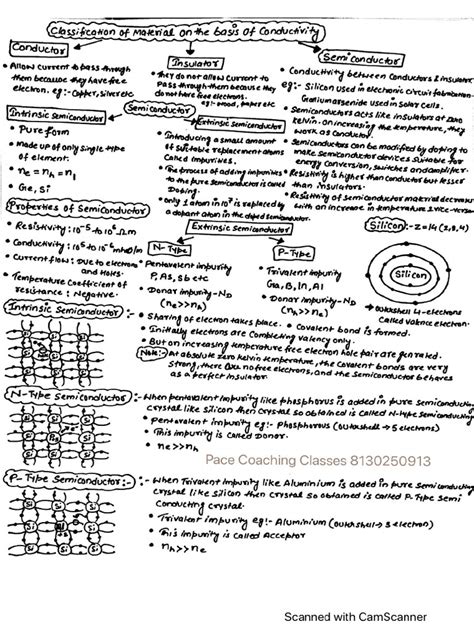 Classification of Material on the basis of Conductivity
Conductor
• Allow current to pass through
them because they have free
electron. eg:- Copper, silver etc
Insulator
• they do not allow current to
pass through them because they
do not have free electrons.
eg:- wood, paper etc
Semiconductor
• Conductivity between Conductors & Insulator
eg:- Silicon used in electronic circuit fabrication
Gallium arsenide used in solar cells.
• Semiconductors acts like insulators at zero
kelvin. on increasing the temperature, they
work as conductor.
• Semiconductors can be modified by doping to
make semiconductor devices suitable for
energy conversion, switches and amplifier.
• Resistivity is higher than conductor but lesser
than insulators.
• Resistivity of semiconductor material decreases
with an increase in temperature & vice-versa
Semiconductor
Intrinsic Semiconductor
• Pure form
• Made up of only single type
of element.
• ne = nh = ni
• Ge, Si
Extrinsic Semiconductor
• Introducing a small amount
of suitable replacement atoms
called impurities.
• The process of adding impurities
to the pure semiconductor is called
Doping.
• only 1 atom in 10⁹ is replaced by
a dopant atom in the doped semiconductor.
Properties of Semiconductor
• Resistivity: 10⁻⁵ to 10⁶ Ωm
• Conductivity: 10⁵ to 10⁻⁶ mho/m
• Current flow: Due to electrons
and Holes.
• Temperature Coefficient of
resistance: Negative.
Extrinsic Semiconductor
N-Type
• Pentavalent impurity
P, As, Sb etc
• Donar impurity - ND
(ne>>nh)
P-Type
• Trivalent impurity
Ga, B, In, Al
• Donar impurity - ND
(nh>>ne)
Silicon:- Z=14 (2,8,4)
Silicon
outershell 4-electrons
Called valence electron.
Intrinsic Semiconductor:-
• Sharing of electron takes place. • Covalent bond is formed.
• Initially electrons are Completing valency only.
• But on increasing temperature free electron hole pair are genrated.
Note:- At absolute zero kelvin temperature, the Covalent bonds are very
strong, there are no free electrons, and the semiconductor behaves
as a perfect insulator.
Si Si Si
Si Si Si
Si Si Si
N-Type Semiconductor:-
• When pentavalent impurity like phosphorus is added in pure semiconducting
crystal like silicon then crystal so obtained is called N-type semiconducting
• pentavalent impurity eg:- Phosphorous (outershell → 5 electrons)
• This impurity is called Donor.
• ne>>nh
Si Si Si
Si Si
Si Si Si
Pace Coaching Classes 8130250913
P-Type Semiconductor:-
• When Trivalent impurity like Aluminium is added in pure semiconducting
crystal like silicon then crystal so obtained is called P-Type Semi
conducting crystal.
• Trivalent impurity eg:- Aluminium (outershell → 3 electron)
• This impurity is called Acceptor
• nh>>ne
Si Si Si
Si Al Si
Si Si Si
Scanned with CamScanner